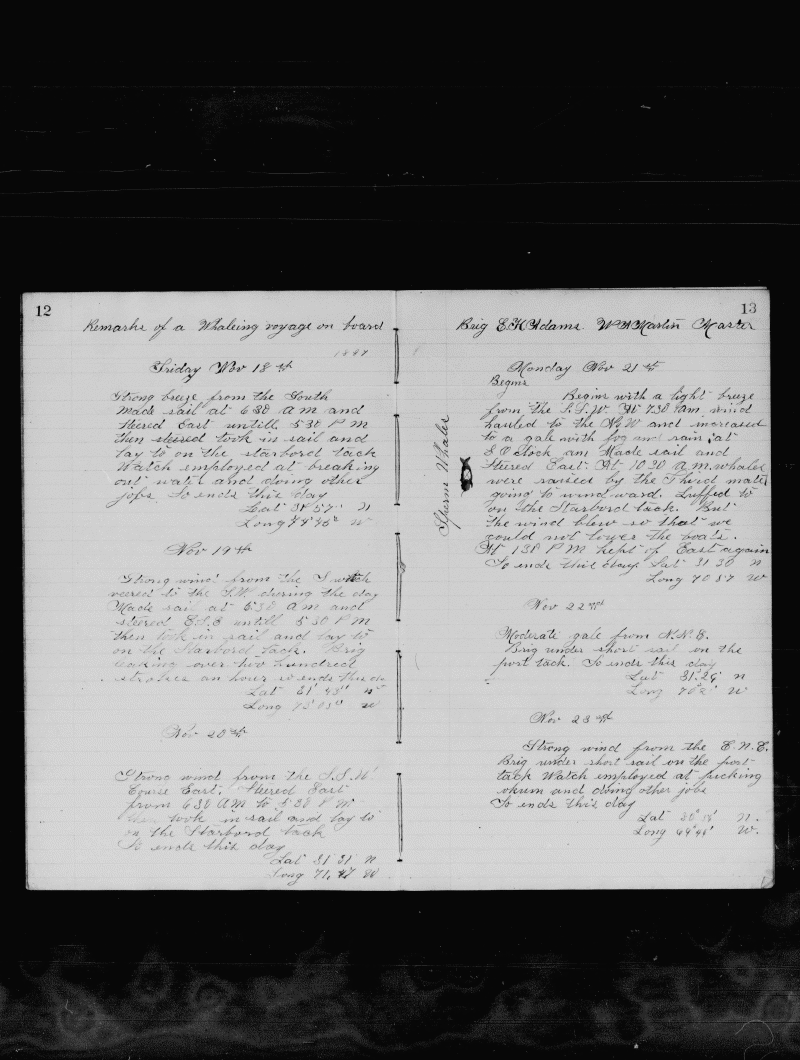 12
Remarks of a Whaleing voyage on board
Friday Nov 18th
Strong breeze from the South
Made sail at 630 A M and
steered East untill 530 P M
then steered took in sail and
lay to on the starbord tack
Watch employed at breaking
out water and doing other
jobs So ends this day
Lat 31° 57' N
Long W
Nov 19th
Strong wind from the S which
veered to the SW during the day
Made sail at 530 A M and
steered E.S.E untill 530 P M
then took in sail and lay to
on the Starbord tack. Brig
leaking over two hundred
strokes an hour so ends this day
Lat 31° 43' N
Long 73° 05' W
Nov 20th
Strong wind from the S.S.W
Course East. Steered East
from 630 AM to 530 P M
then took in sail and lay to
on the Starbord tack
So ends this day
Lat 31 31 N
Long 71. 47 W
13
Brig E.H.Adams. W A Martin Master
Monday Nov 21st
Begins
Begins with a light breeze
from the S.S.W. At 730 am wind
hauled to the N.W and increased
to a gale with fog and rain, at
8 O Clock am Made sail and
Steered East. At 1030 A.M. whales
were raised by the Third mate
going to wind ward. Luffed to
on the Starbord tack. But
the wind blew so that we
could not lower the boats.
At 130 P M kept of East again
So ends this day Lat 31 30 N
Long 70 57 W
Sperm Whales
Nov 22nd
Moderate gale from N.N.E.
Brig under short sail on the
port tack. So ends this day
Lat 31° 26' N
Long W
Nov 23rd
Strong wind from the E.N.E.
Brig under short sail on the port
tack Watch employed at picking
okum and doing other jobs
So ends this day
Lat 30° 18' N.
Long 69° 46' W.